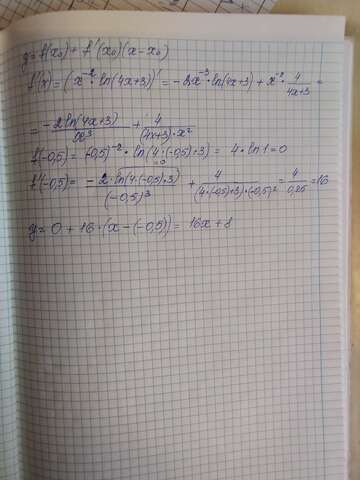 y = f(x₀) + f'(x₀)(x - x₀)
f'(x) = (x⁻² · ln(4x+3))' = -2x⁻³ · ln(4x+3) + x⁻² · 4/(4x+3) =
= -2ln(4x+3)/x³ + 4/((4x+3)·x²)
f(-0,5) = (-0,5)⁻² · ln(4·(-0,5)+3) = 4 · ln 1 = 0
=0
f'(-0,5) = -2 ln(4·(-0,5)+3)/(-0,5)³ + 4/((4·(-0,5)+3)·(-0,5)²) = 4/0,25 = 16
y = 0 + 16 · (x - (-0,5)) = 16x + 8